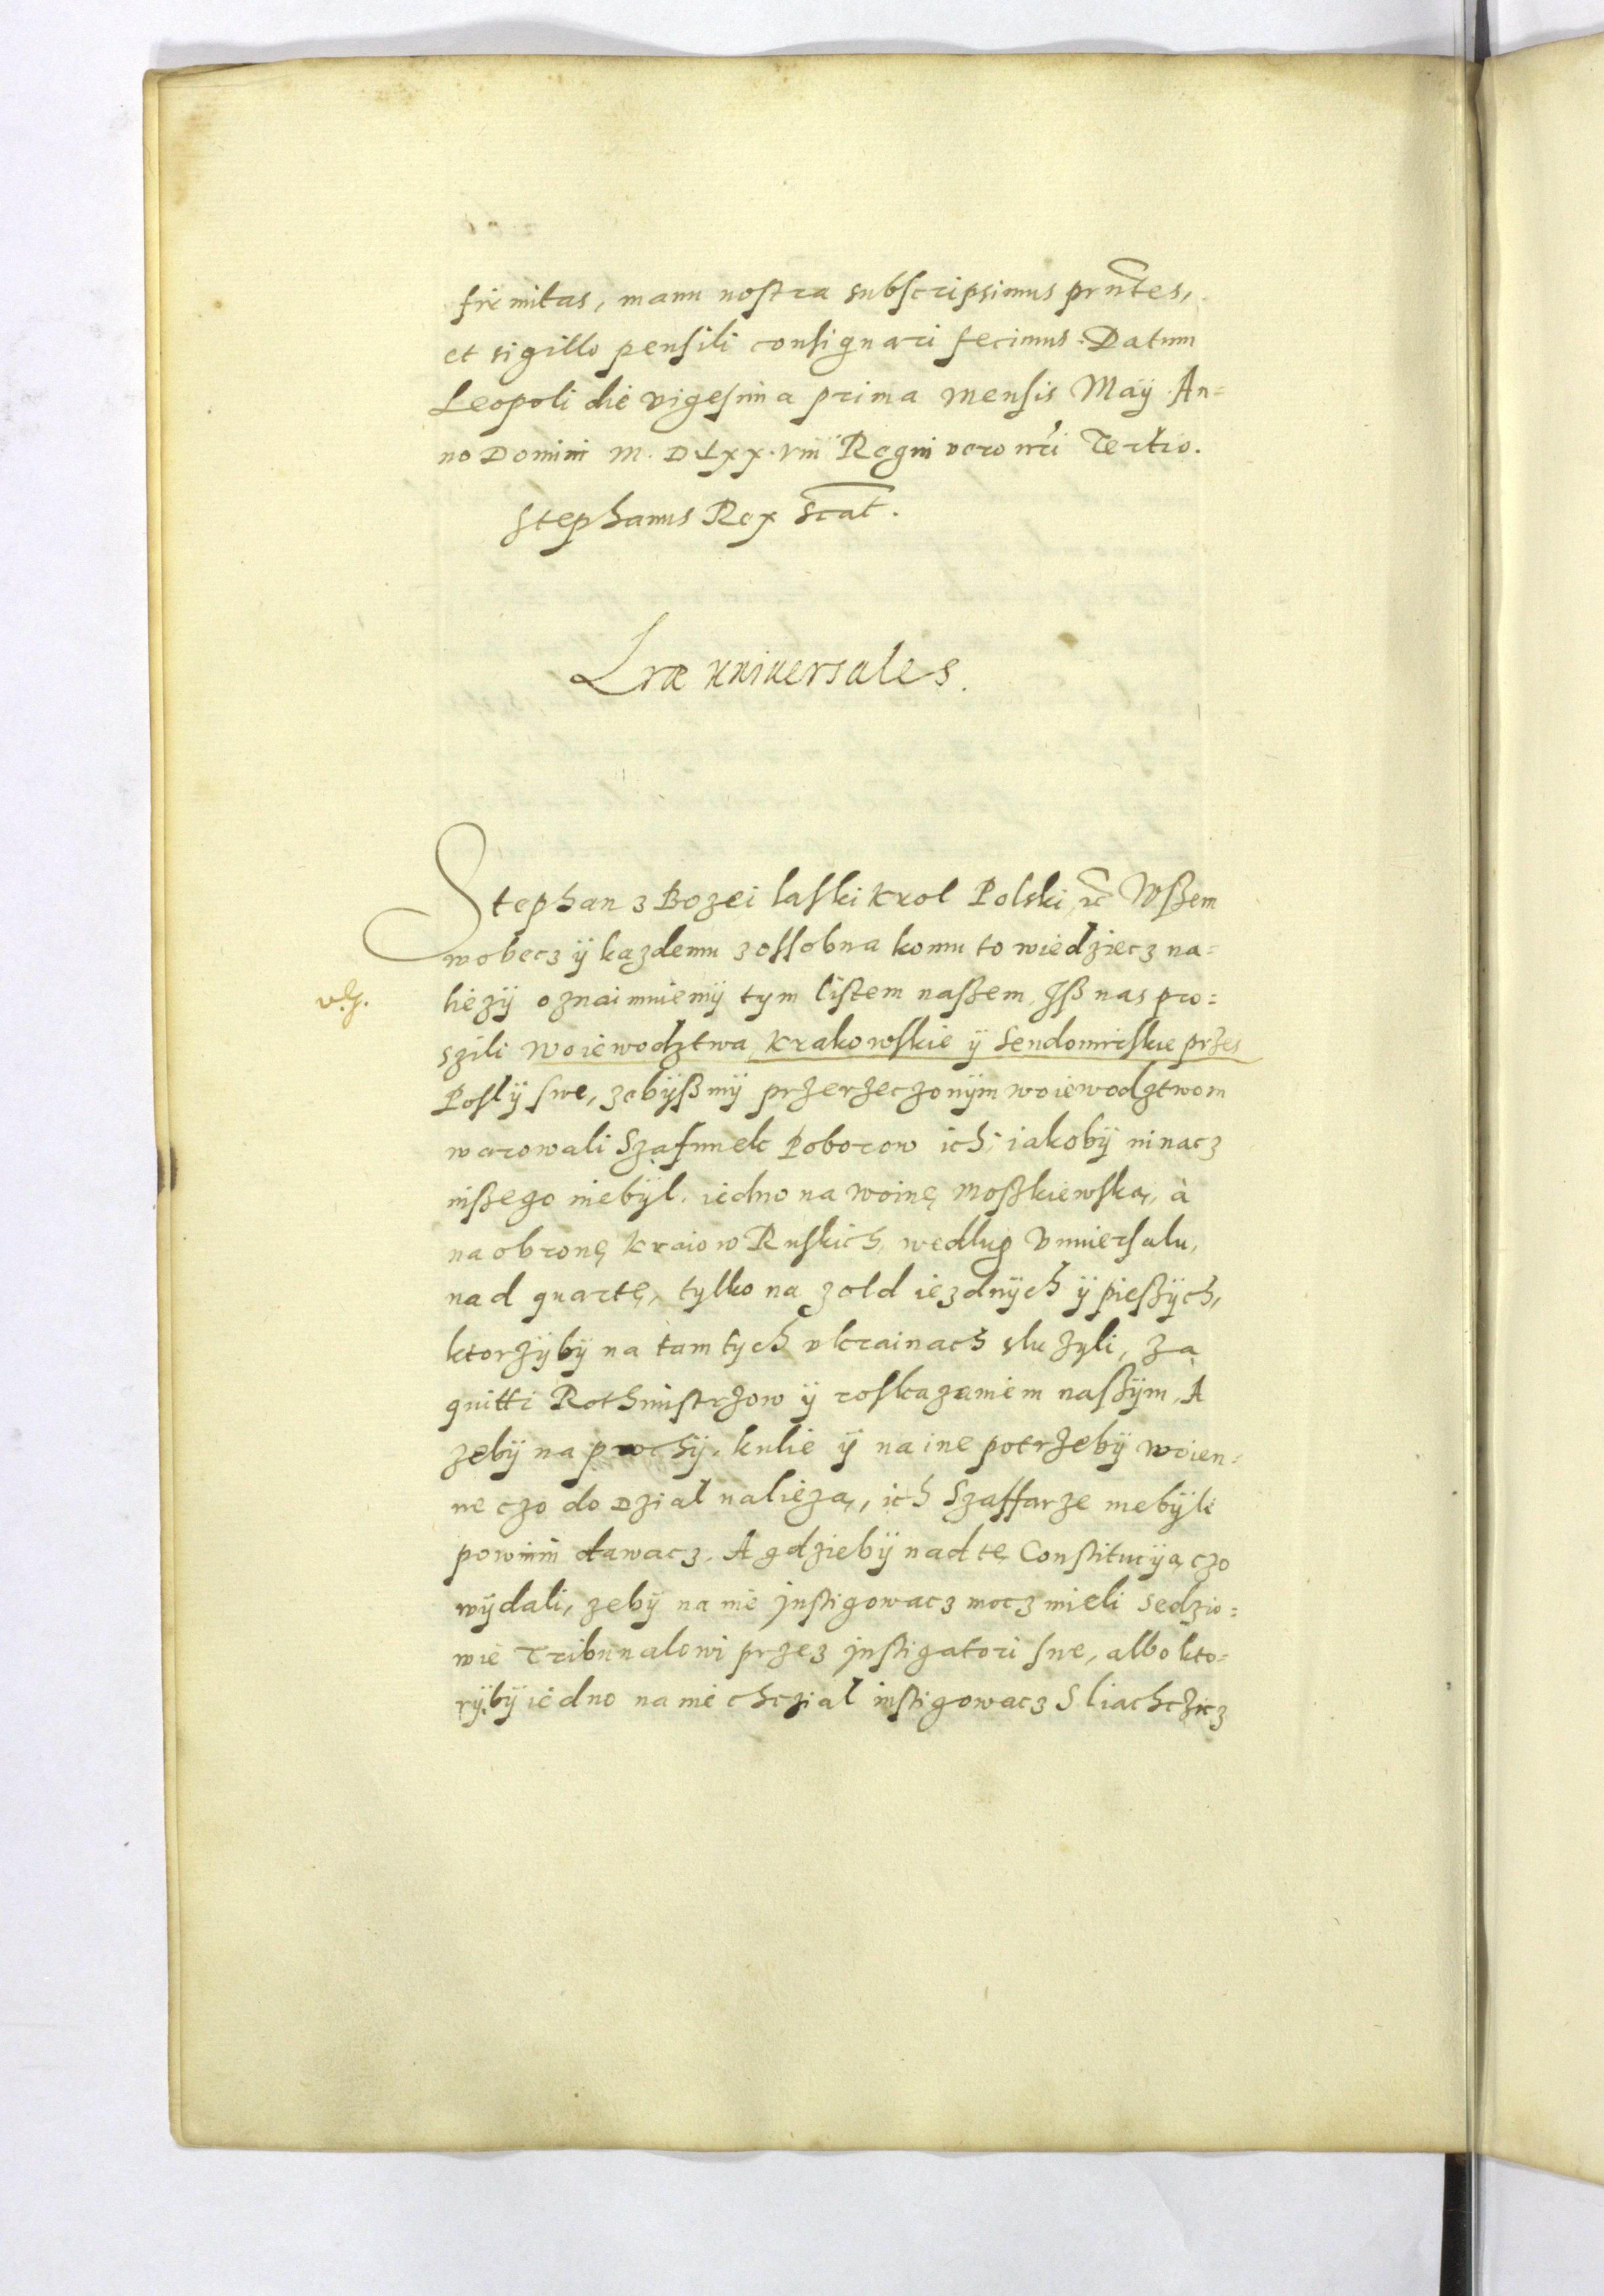 firmitas, manu nostra subscripsimus prntes,
et sigillo pensili consignari fecimus. Datum
Leopoli die vigesima prima mensis Maÿ An=
no Domini M. D. Lxx. viii Regni vero nri Tertio.
Stephanus Rex scat.
Lræ vniuersales.
Stephan z Bozei laski krol Polski, rc Wßem
wobecz ÿ kazdemu zossobna komu to wiedziecz na=
liezÿ oznaimniemÿ tym listem naßem, Jß nas pro=
szili woiewodztwa, krakowskie ÿ Sendomirskie przes
Poslÿ swe, zebÿßmÿ przerzeczonÿm woiewodztwom
warowali Szafunek Poborow ich, iakobÿ ni nacz
inßego niebÿl. iedno na woinę Moßkiewską, à
na obronę kraiow Ruskich, wedlug Vniuersalu,
nad quartę, tylko na zold iezdnÿch ÿ pießÿch,
ktorzÿbÿ na tamtych vkrainach sluzyli, za
quitti Rothmistrzow ÿ roskazaniem naßÿm, A
zebÿ na prochÿ, kulie ÿ na ine potrzebÿ woien=
ne czo do Dzial nalieza, ich Szaffarze niebÿli
powinni dawacz. A gdziebÿ nad tę Constitucÿą czo
wÿdali, zebÿ na nie jnstigowacz mocz mieli Sedzio=
wie Tribunalowi przez jnstigatori swe, albo kto=
rÿbÿ iedno na nie chczial instigowacz Sliachczicz